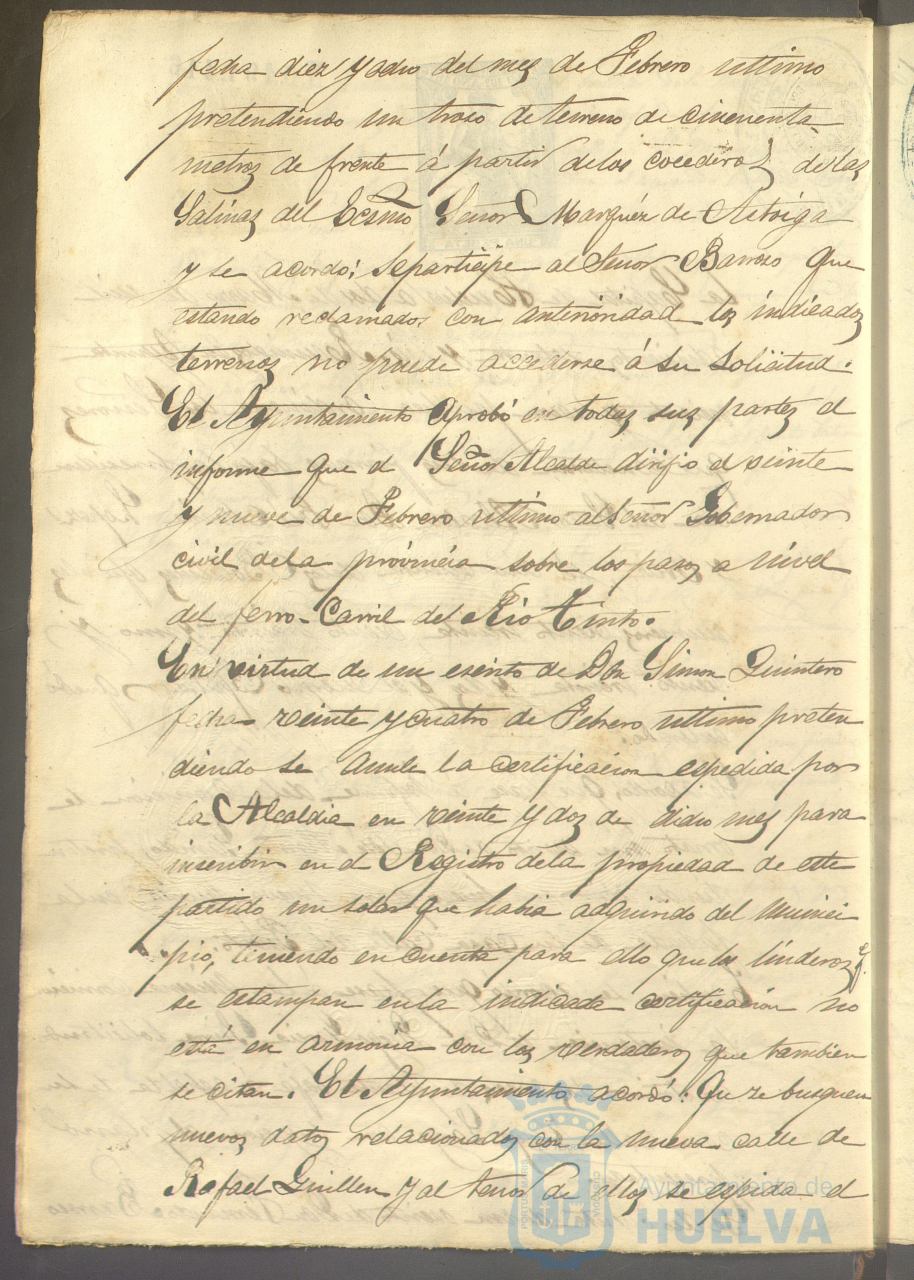 fecha diez y ocho del mes de Febrero ultimo
pretendiendo un troso de terreno de cincuenta
metros de frente á partir de los cocederos de las
Salinas del Ecsmo Señor Marqués de Astorga
y se acordó; se participe al Señor Barroso que
estando reclamados con anterioridad los indicados
terrenos no puede accederse á su solicitud.
El Ayuntamiento aprobó en todas sus partes el
informe que el Señor Alcalde dirijio el veinte
y nueve de Febrero ultimo al Señor Gobernador
civil de la provincia sobre los pasos a nivel
del ferro-Carril del Rio Tinto.
En virtud de un escrito de Don Simon Quintero
fecha veinte y cuatro de Febrero ultimo preten
diendo se anule la certificacion espedida por
la Alcaldia en veinte y dos de dicho mes para
inscribir en el Registro de la propiedad de este
partido un solar que habia adquirido del Munici
pio, teniendo en cuenta para ello que los linderos q.
se estampan en la indicada certificación no
está en armonia con los verdaderos que tambien
se citan. El Ayuntamiento acordó: Que se busquen
nuevos datos relacionados con la nueva calle de
Rafael Guillen y al tenor de ellos se espida el
Ayuntamiento de
HUELVA